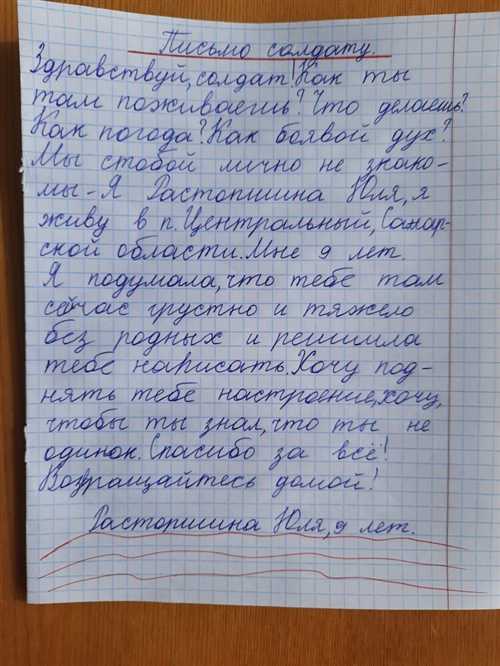 Письмо солдату.
Здравствуй, солдат! Как ты
там поживаешь? Что делаешь?
Как погода? Как боявой дух?
Мы стобой лично не знако-
мы - Я Растопшина Юля, я
живу в п. Центральный, Самар-
ской области. Мне 9 лет.
Я подумала, что тебе там
сейчас грустно и тяжело
без родных и решила
тебе написать. Хочу под-
нять тебе настроение, хочу,
чтобы ты знал, что ты не
одинок. Спасибо за всё!
Возвращайтесь домой!
Растопшина Юля, 9 лет.